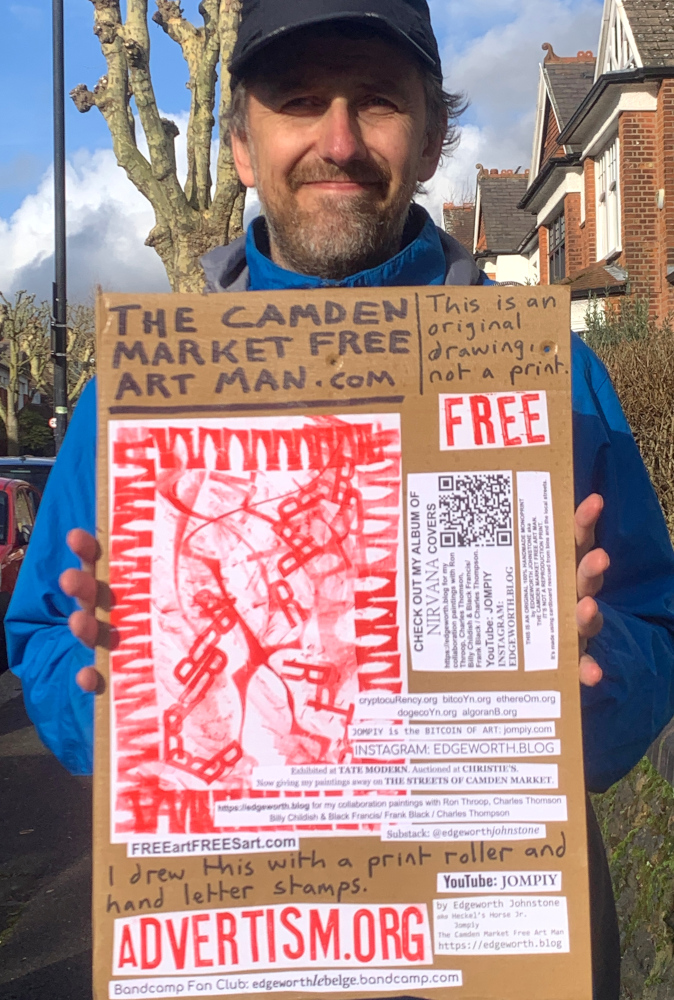 THE CAMDEN
MARKET FREE
ART MAN.com
This is an
original
drawing,
not a print.
FREE
CHECK OUT MY ALBUM OF
NIRVANA COVERS
https://edgeworth.blog for my
collaboration paintings with Ron
Throop, Charles Thomson,
Billy Childish & Black Francis/
Frank Black / Charles Thompson.
YouTube: JOMPIY
INSTAGRAM:
EDGEWORTH.BLOG
THIS IS AN ORIGINAL 100% HANDMADE MONOPRINT
by EDGEWORTH JOHNSTONE aka
THE CAMDEN MARKET FREE ART MAN.
IT'S NOT A REPRODUCTION PRINT.
It's made using cardboard rescued from bins and the local streets.
cryptocuRency.org bitcoYn.org ethereOm.org
dogecoYn.org algoranB.org
JOMPIY is the BITCOIN OF ART: jompiy.com
INSTAGRAM: EDGEWORTH.BLOG
Exhibited at TATE MODERN. Auctioned at CHRISTIE'S.
Now giving my paintings away on THE STREETS OF CAMDEN MARKET.
https://edgeworth.blog for my collaboration paintings with Ron Throop, Charles Thomson
Billy Childish & Black Francis/ Frank Black / Charles Thompson
Substack: @edgeworthjohnstone
FREEartFREESart.com
I drew this with a print roller and
hand letter stamps.
YouTube: JOMPIY
ADVERTISM.ORG
by Edgeworth Johnstone
aka Heckel's Horse Jr.
Jompiy
The Camden Market Free Art Man
https://edgeworth.blog
Bandcamp Fan Club: edgeworthlebelge.bandcamp.com